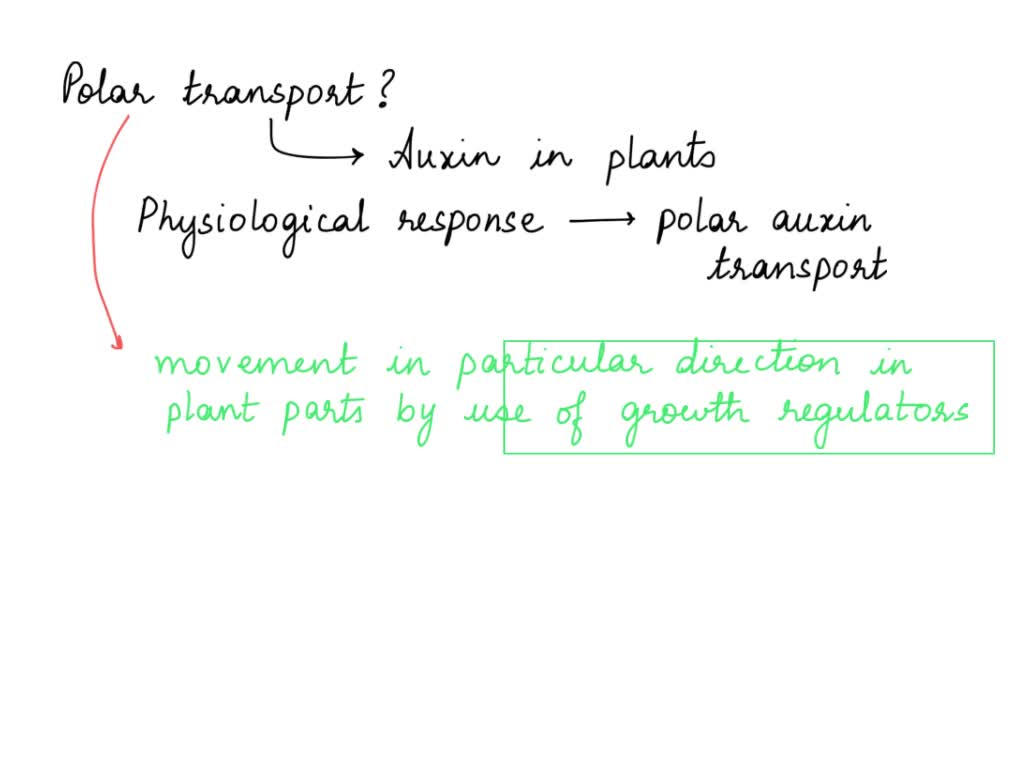 Polar transport?
Auxin in plants
Physiological response → polar auxin
transport
movement in particular direction in
plant parts by use of growth regulators